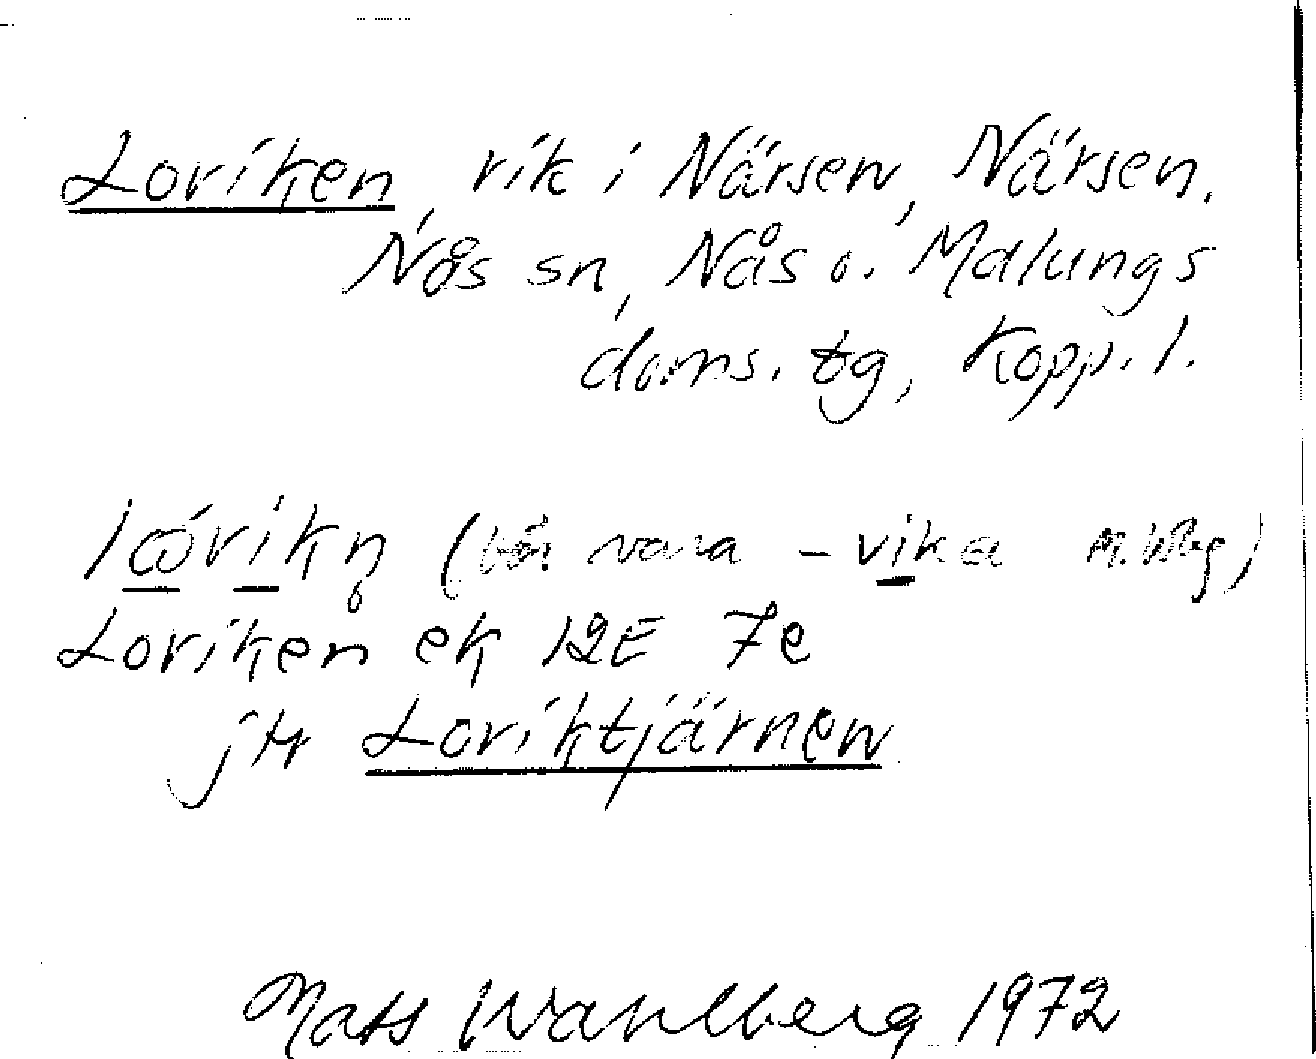 Loviken, vik i Närsen, Närsen,
Nås sn, Nås o. Malungs
doms. tg, Kopp. l.
lώ̲vi̲kn̥ (bör vara -vi̲ka M. Wbg)
Loviken ek 12E 7e
jfr Loviktjärnen
Mats Wahlberg 1972